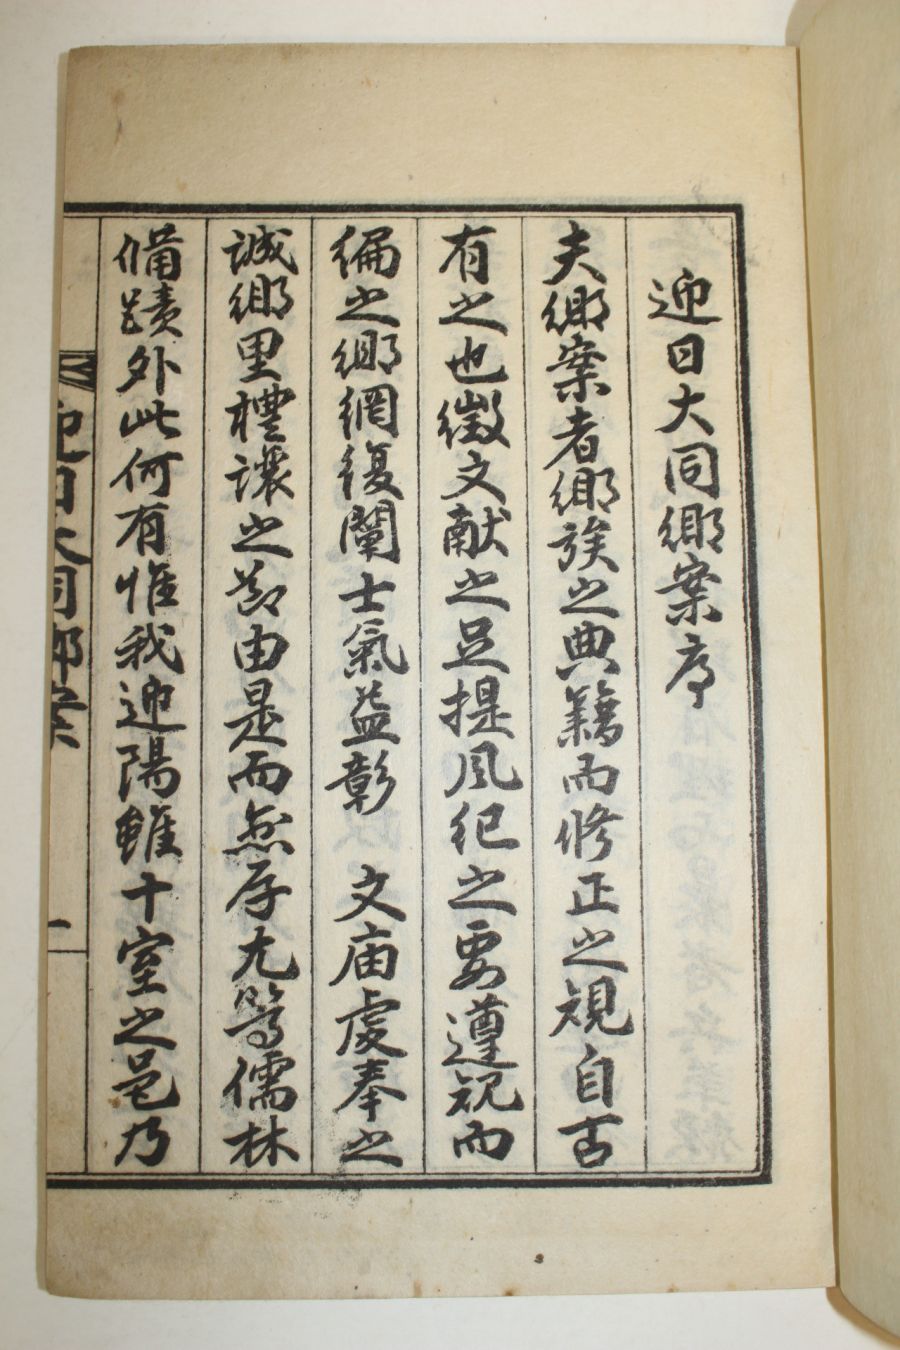 迎日大同鄕案序
夫鄕案者鄕族之典籍而修正之規自古
有之也徵文献之足提風紀之要遵規而
編之鄕綱復闡士氣益彰 文庙虔奉之
誠鄕里禮讓之節由是而益存尤篤儒林
備蹟外此何有惟我迎陽雖十室之邑乃
迎日大同鄕案
一